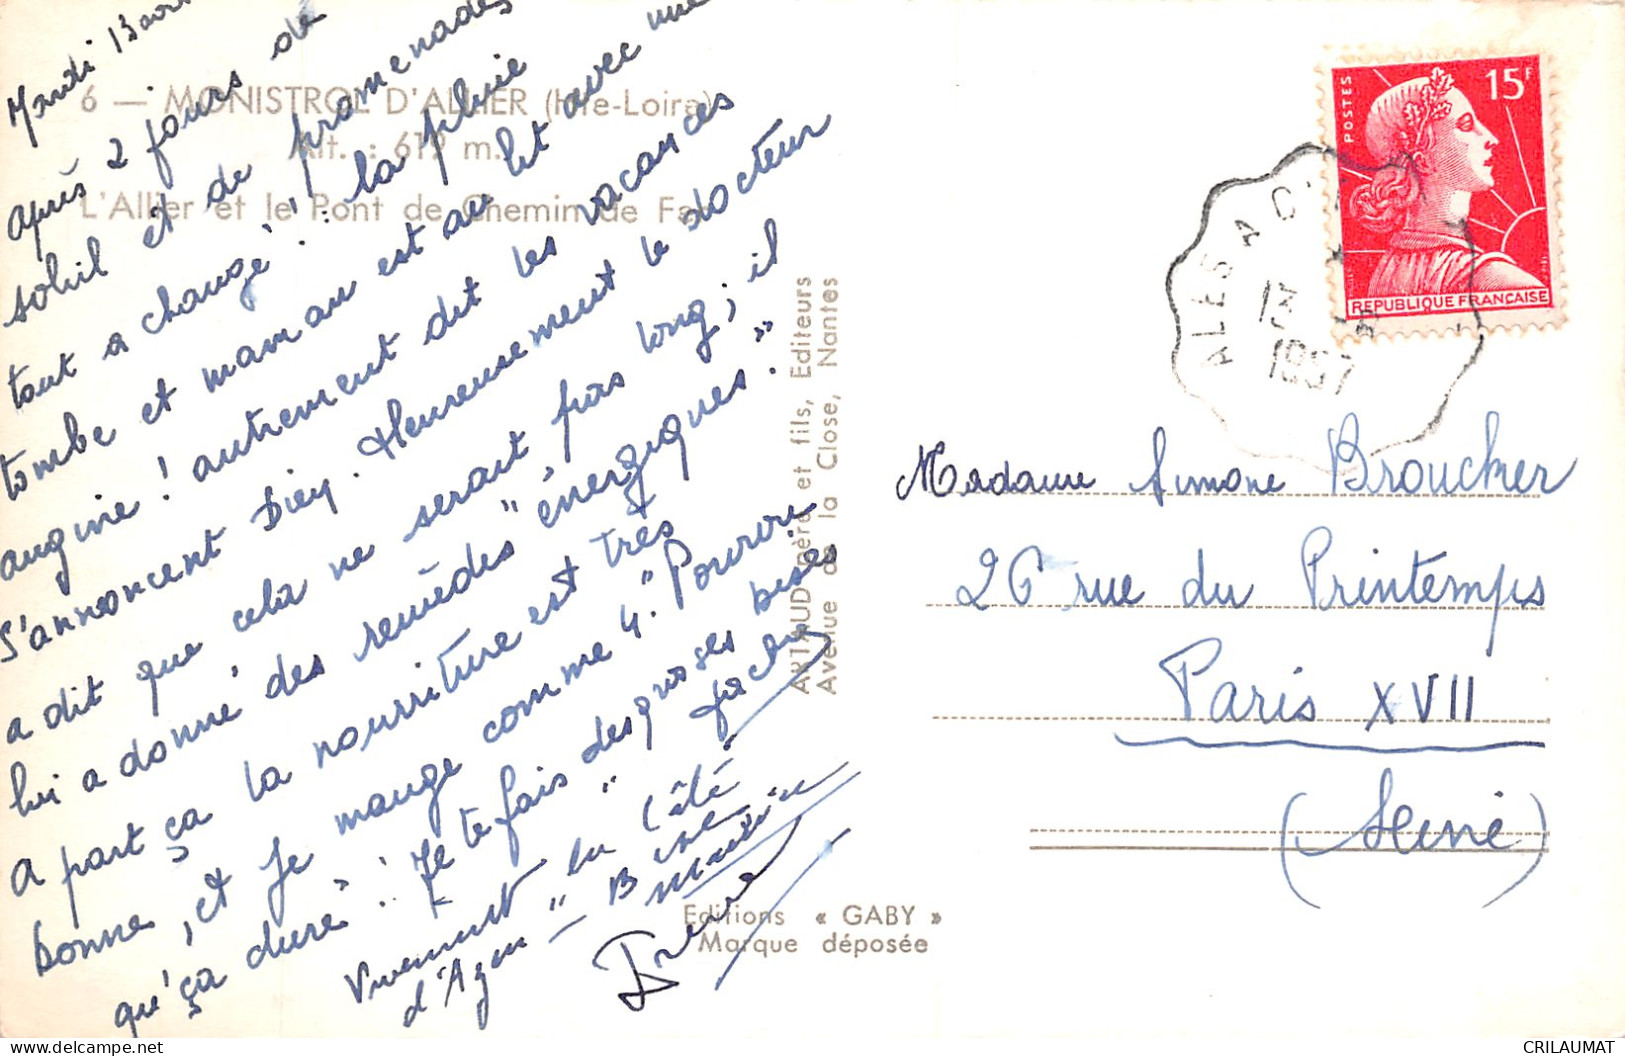 Mardi 13 août
après 2 jours de
soleil et de promenades
tout a changé ! la pluie
tombe et maman est au lit avec une
angine ! autrement dit les vacances
s'annoncent bien. Heureusement le docteur
a dit que cela ne serait pas long ; il
lui a donné des remèdes "énergiques".
A part ça la nourriture est très
bonne, et je mange comme 4. "Pourvu
qu'ça dure" ! Je te fais des grosses bises
Vivement la
d'Agen
Bise
6 — MONISTROL D'ALLIER (Hte-Loire)
Alt. : 619 m.
L'Allier et le Pont de Chemin de Fer
ARTAUD père et fils, Editeurs
Avenue de la Close, Nantes
Editions « GABY »
Marque déposée
POSTES
15F
REPUBLIQUE FRANÇAISE
ALÈS A
1957
Madame Simone Broucker
26 rue du Printemps
Paris XVII
(Seine)
CRILAUMAT